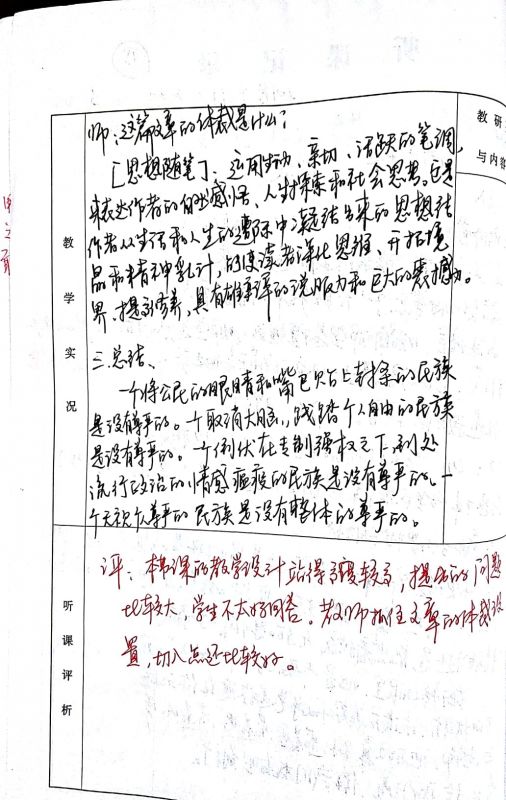 教研
与内容
教学实况
师：这篇文章的体裁是什么？
［思想随笔］，运用生动、亲切、活跃的笔调，
来表达作者的自我感悟、人生探索和社会思考。它是
作者从生活和人生的遭际中凝结出来的思想结
晶和精神乳汁，能使读者净化思维、开拓境
界、提高修养，具有雄辩的说服力和巨大的震撼力。
三、总结、
一个将公民的眼睛和嘴巴贴上封条的民族
是没有尊严的。一个取消大脑，践踏个人自由的民族
是没有尊严的。一个俯伏在专制强权之下，到处
流行政治的情感瘟疫的民族是没有尊严的。一
个无视个人尊严的民族是没有整体的尊严的。
听课评析
评：本节课的教学设计站得高度较高，提出的问题
比较大，学生不太好回答。教师抓住文章的体裁设
置，切入点还比较好。